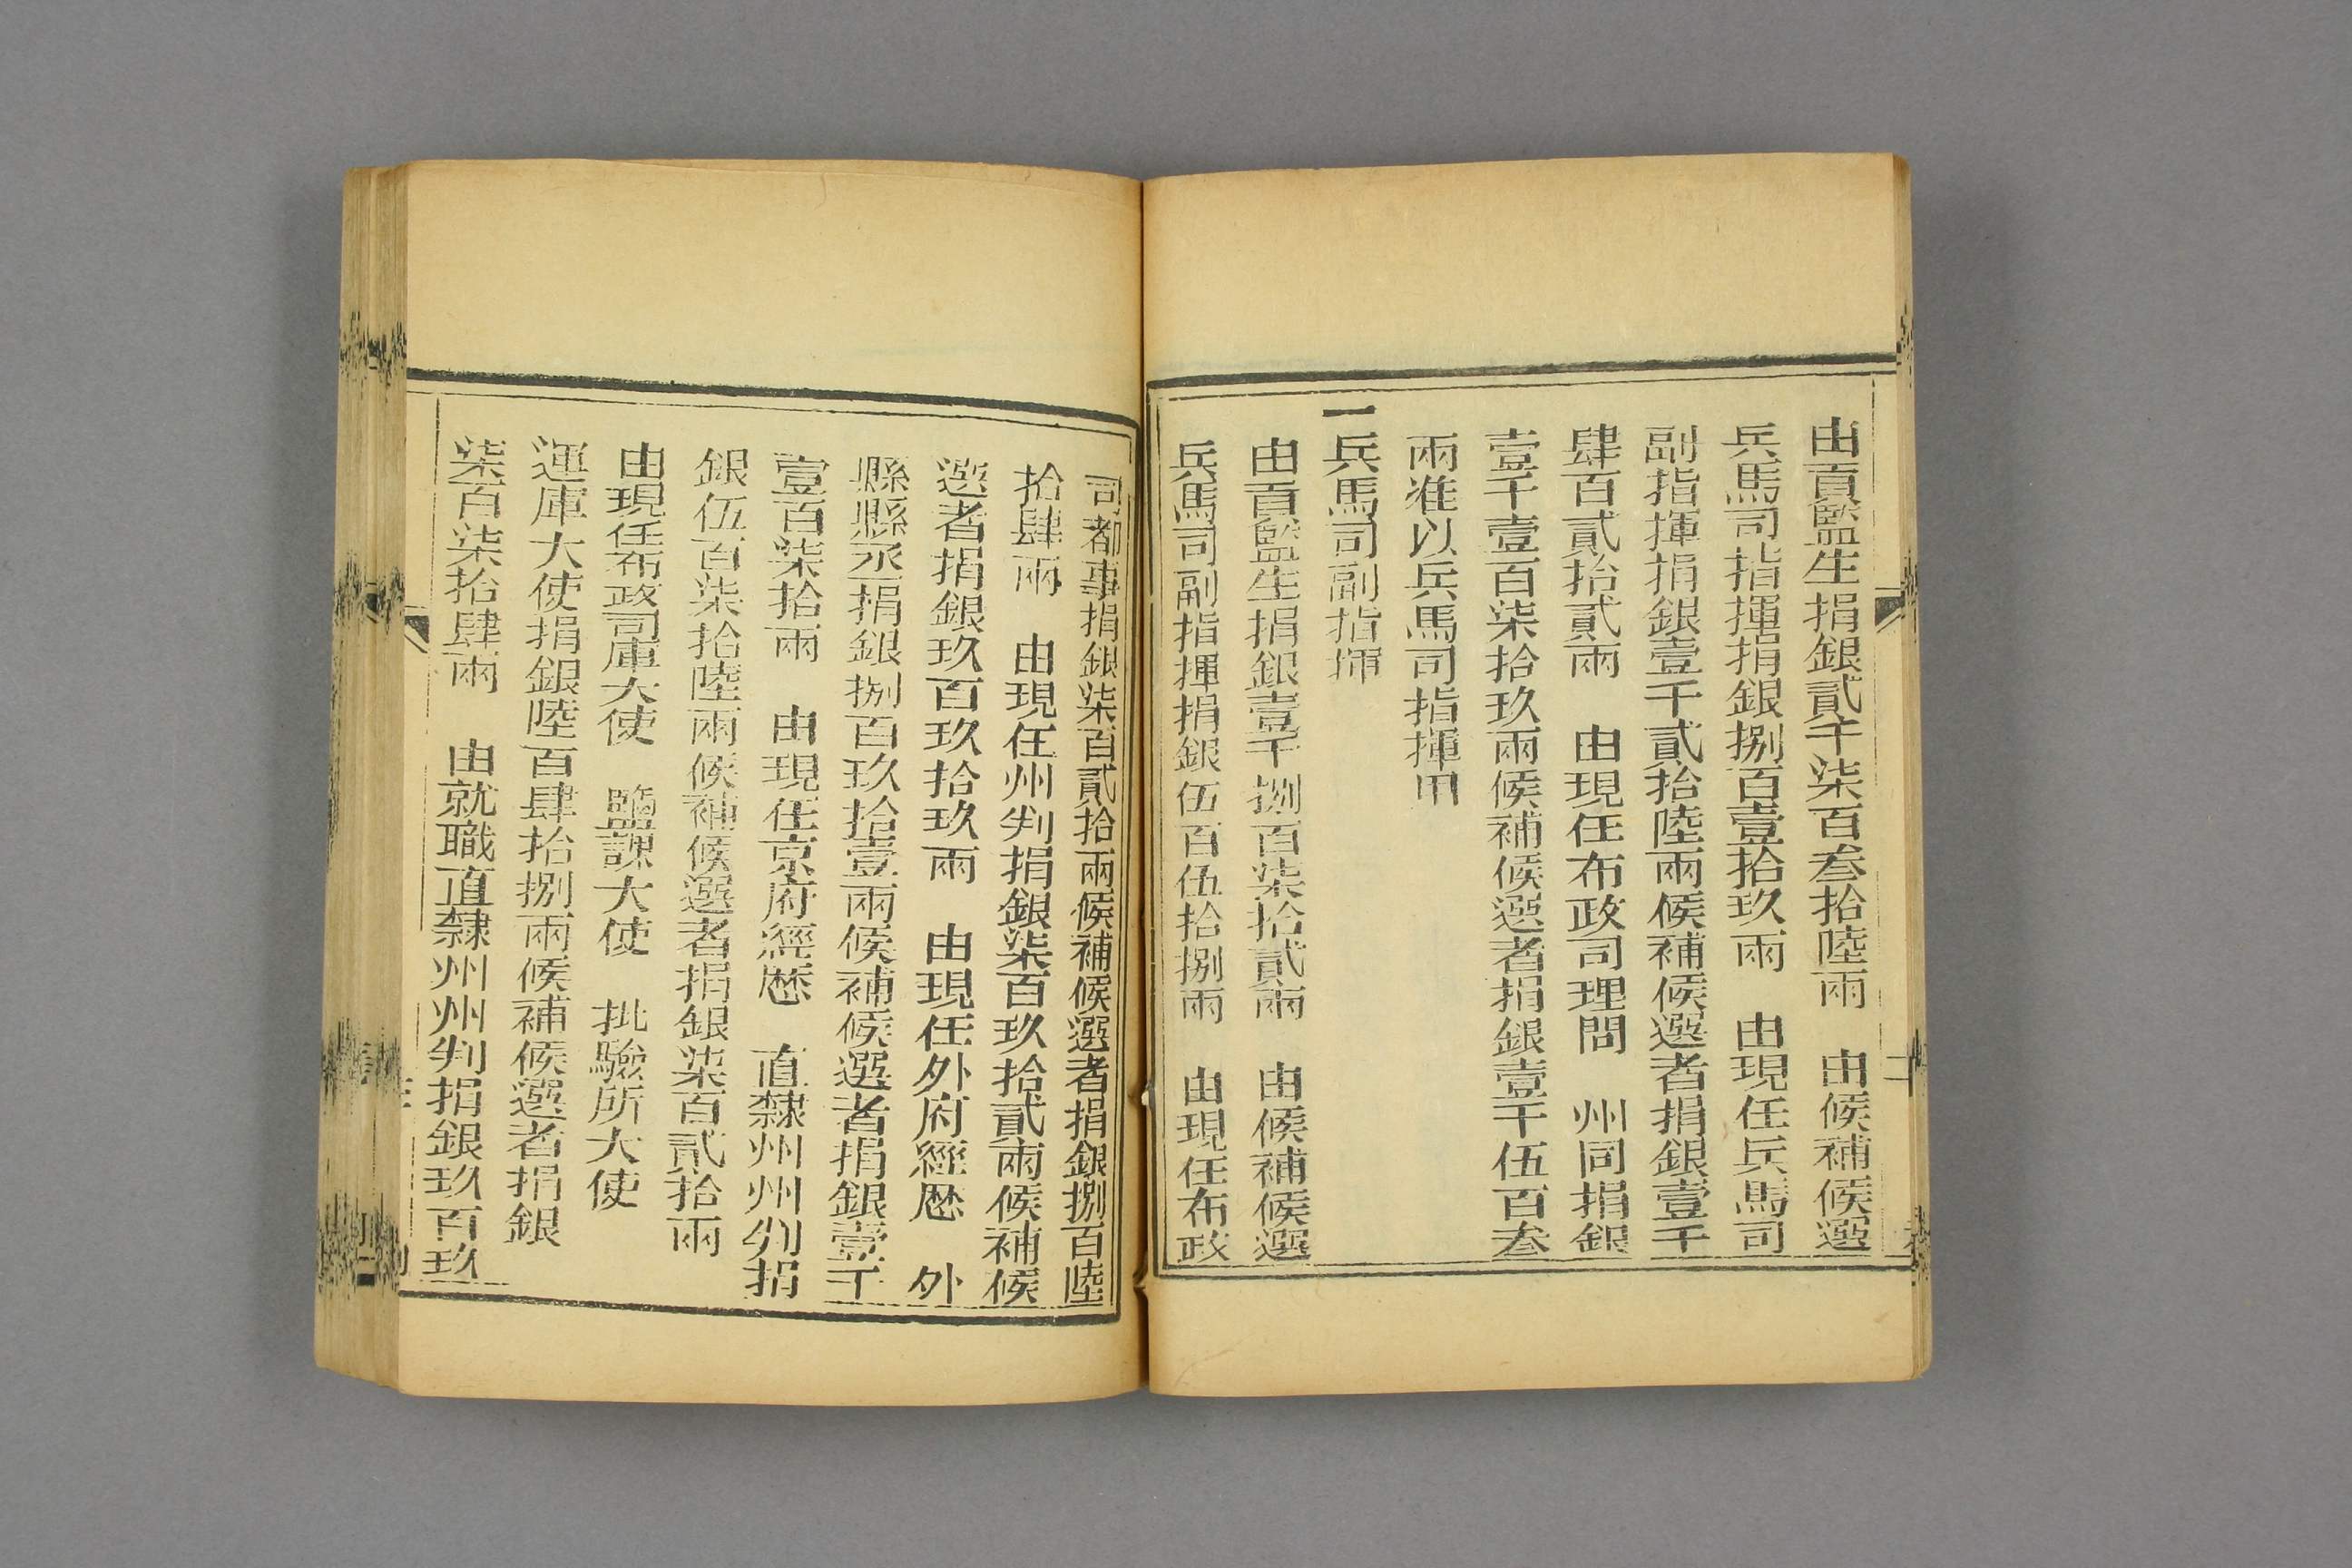 由貢監生捐銀貳千柒百叁拾陸兩　由候補候選
兵馬司指揮捐銀捌百壹拾玖兩　由現任兵馬司
副指揮捐銀壹千貳拾陸兩候補候選者捐銀壹千
肆百貳拾貳兩　由現任布政司理問　州同捐銀
壹千壹百柒拾玖兩候補候選者捐銀壹千伍百叁
兩准以兵馬司指揮用
一兵馬司副指揮
由貢監生捐銀壹千捌百柒拾貳兩　由候補候選
兵馬司副指揮捐銀伍百伍拾捌兩　由現任布政
司都事捐銀柒百貳拾兩候補候選者捐銀捌百陸
拾肆兩　由現任州判捐銀柒百玖拾貳兩候補候
選者捐銀玖百玖拾玖兩　由現任外府經歷　外
縣縣丞捐銀捌百玖拾壹兩候補候選者捐銀壹千
壹百柒拾兩　由現任京府經歷　直隸州州判捐
銀伍百柒拾陸兩候補候選者捐銀柒百貳拾兩
由現任布政司庫大使　鹽課大使　批驗所大使
運庫大使捐銀陸百肆拾捌兩候補候選者捐銀
柒百柒拾肆兩　由就職直隸州州判捐銀玖百玖